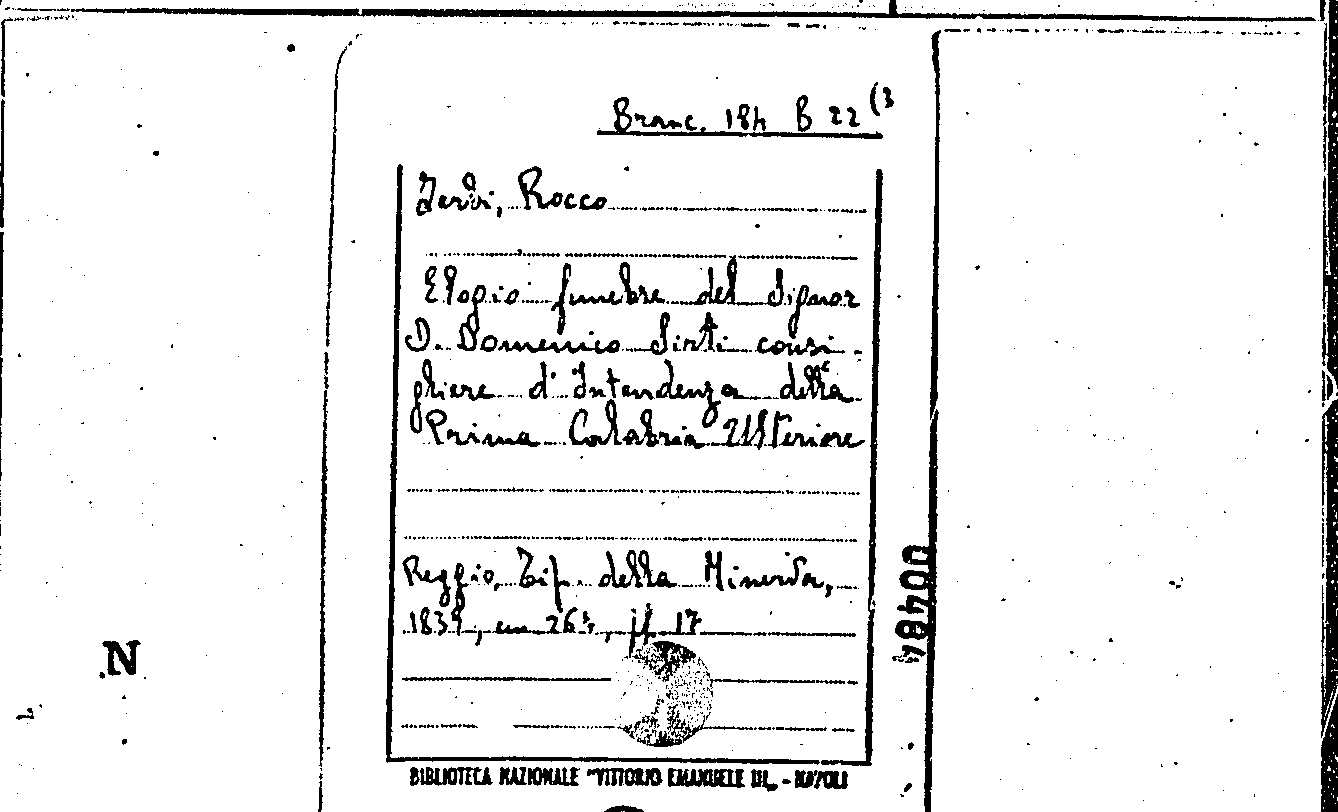 Branc. 184 B 22 (3
Zerbi, Rocco
Elogio funebre del Signor
D. Domenico Sirti consi-
gliere d'Intendenza della
Prima Calabria Ulteriore
Reggio, Tip. della Minerva,
1839, cm 26½, pp 17
00484
N
BIBLIOTECA NAZIONALE "VITTORIO EMANUELE III" - NAPOLI